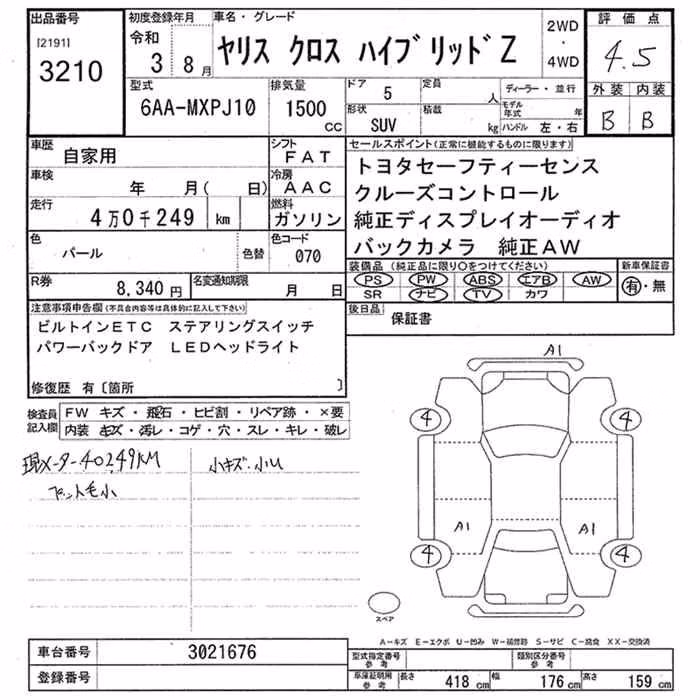 出品番号 初度登録年月 車名・グレード 2WD・4WD 評価点
[2191] 令和
3210 3 8月 ヤリス クロス ハイブリッド Z 4.5
型式 排気量 ドア 5 定員 人 ディーラー・並行 外装 内装
6AA-MXPJ10 1500 CC 形状 SUV 積載 kg モデル年式 年 ハンドル 左・右 B B
車歴 自家用 シフト FAT セールスポイント(正常に機能するものに限ります)
車検 年 月( 日) 冷房 AAC トヨタセーフティーセンス
走行 4万0千249 km 燃料 ガソリン クルーズコントロール
純正ディスプレイオーディオ
色 パール 色替 色コード 070 バックカメラ 純正AW
R券 8,340円 名変通知期限 月 日 装備品(純正品に限り○をつけてください) 新車保証書
PS PW ABS エアB AW 有・無
SR ナビ TV カワ
注意事項申告欄(不具合内容等は具体的に記入して下さい) 後日品 保証書
ビルトインETC ステアリングスイッチ
パワーバックドア LEDヘッドライト
修復歴 有〔箇所 〕
検査員記入欄 FW キズ・飛石・ヒビ割・リペア跡・×要
内装 キズ・汚レ・コゲ・穴・スレ・キレ・破レ
現メーター40249KM 小キズ.小U
マット毛小
A1
4 4
A1 A1
4 4
スペア
A-キズ E-エクボ U-凹み W-補修跡 S-サビ C-腐食 XX-交換済
車台番号 3021676 型式指定番号 参考 類別区分番号 参考
登録番号 車庫証明用 参考 長さ 418 cm 幅 176 cm 高さ 159 cm